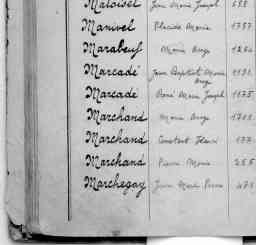 Matoisel Jean Marie Joseph
Manivel Placide Marie 1757
Marabeuf Marie Ange
Marcadé Jean Baptiste Marie
Ange
Marcadé René Marie Joseph 1175
Marchand Marie Ange
Marchand Constant Henri
Marchand Pierre Marie 255
Marchegay Jean Marie Pierre